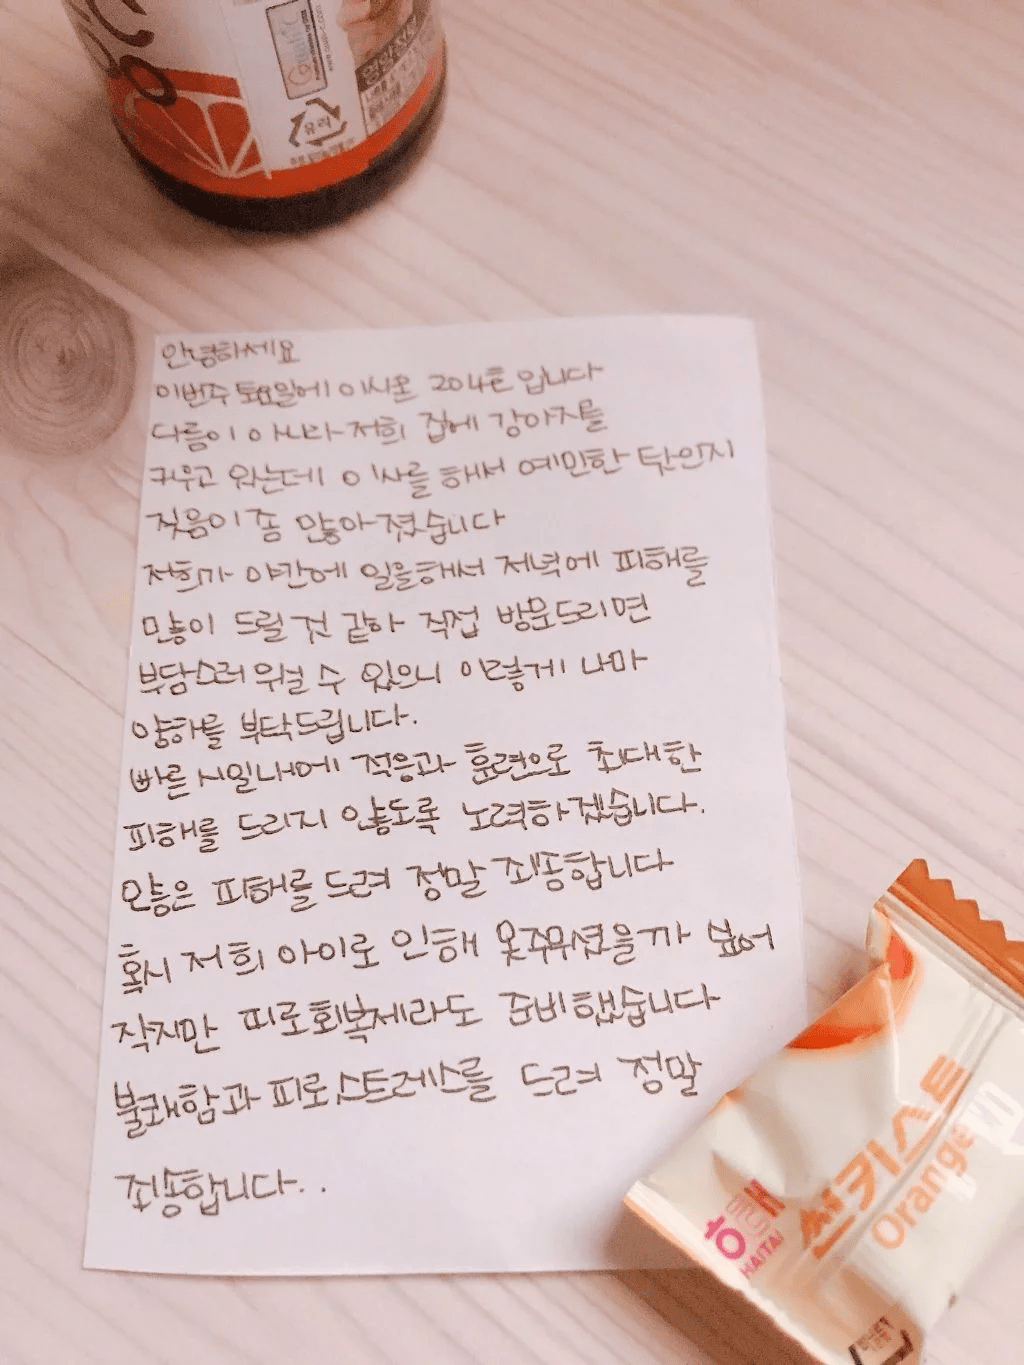 유리
안녕하세요
이번주 토요일에 이사온 204호 입니다
다름이 아니라 저희 집에 강아지를
키우고 있는데 이사를 해서 예민한 탓인지
짖음이 좀 많아졌습니다
저희가 야간에 일을해서 저녁에 피해를
많이 드릴것 같아 직접 방문드리면
부담스러워할 수 있으니 이렇게 나마
양해를 부탁드립니다.
빠른 시일내에 적응과 훈련으로 최대한
피해를 드리지 않도록 노력하겠습니다.
않은 피해를 드려 정말 죄송합니다
혹시 저희 아이로 인해 못주무셨을까 싶어
작지만 피로회복제라도 준비했습니다
불쾌함과 피로,스트레스를 드려 정말
죄송합니다..
해태
HAITAI
썬키스트
Orange